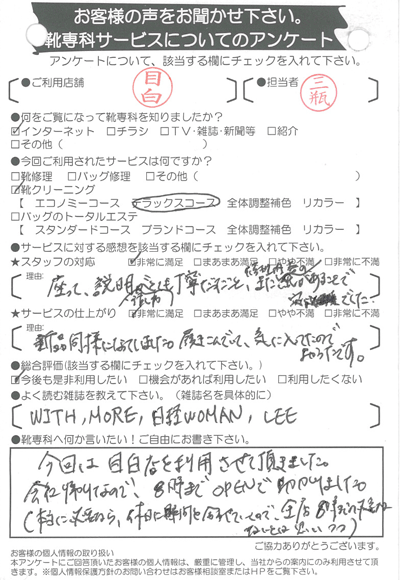 お客様の声をお聞かせ下さい。
靴専科サービスについてのアンケート
アンケートについて、該当する欄にチェックを入れて下さい。
●ご利用店舗 目白 ●担当者 三瓶
●何をご覧になって靴専科を知りましたか?
☑インターネット □チラシ □TV・雑誌・新聞等 □紹介
□その他( )
●今回ご利用されたサービスは何ですか?
□靴修理 □バッグ修理 □その他( )
☑靴クリーニング
【 エコノミーコース デラックスコース 全体調整補色 リカラー 】
□バッグのトータルエステ
【 スタンダードコース ブランドコース 全体調整補色 リカラー 】
●サービスに対する感想を該当する欄にチェックを入れて下さい。
★スタッフの対応 ☑非常に満足 □まあまあ満足 □やや不満 □非常に不満
理由:
座って、説明 とても丁寧だったこと、また
★サービスの仕上がり ☑非常に満足 □まあまあ満足 □やや不満 □非常に不満
理由:
新品同様になってました。履きこんでいて、気に入ってたので
です。
●総合評価(該当する欄にチェックを入れて下さい。)
☑今後も是非利用したい □機会があれば利用したい □利用したくない
●よく読む雑誌を教えて下さい。(雑誌名を具体的に)
WITH, MORE, 日経WOMAN, LEE
●靴専科へ何か言いたい!ご自由にお書き下さい。
今回は目白店を利用させて頂きました。
会社帰りなので、8時までOPENで助かりました
ご協力ありがとうございます。
お客様の個人情報の取り扱い
本アンケートにご回答頂いたお客様の個人情報は、厳重に管理し、当社からの案内にのみ利用させて頂
きます。※個人情報保護方針のお問い合わせはお客様相談室またはHPをご覧下さい。